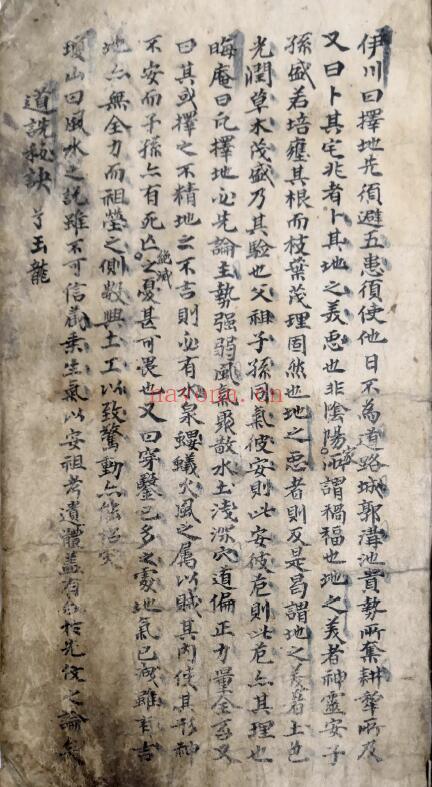 伊川曰擇地先須避五患須使他日不為道路城郭溝池貴勢所奪耕犂所及
又曰卜其宅兆者卜其地之美惡也非陰陽家所謂禍福也地之美者神靈安子
孫盛若培壅其根而枝葉茂理固然也地之惡者則反是曷謂地之美者土色
光潤草木茂盛乃其驗也父祖子孫同氣彼安則此安彼危則此危亦其理也
晦庵曰凡擇地必先論主勢强弱風氣聚散水土淺深穴道偏正力量全否又
曰其或擇之不精地之不吉則必有水泉螻蟻火風之属以賊其內使其形神
不安而子孫亦有死亡絕滅之憂甚可畏也又曰穿鑿已多之處地氣已洩雖有吉
地亦無全力而祖塋之側數興土工以致驚動亦能招災
瓊山曰風水之說雖不可信然乘生氣以安祖考遺體盖有合於先儒之論矣
道詵秘訣 玉龍
nayona.cn